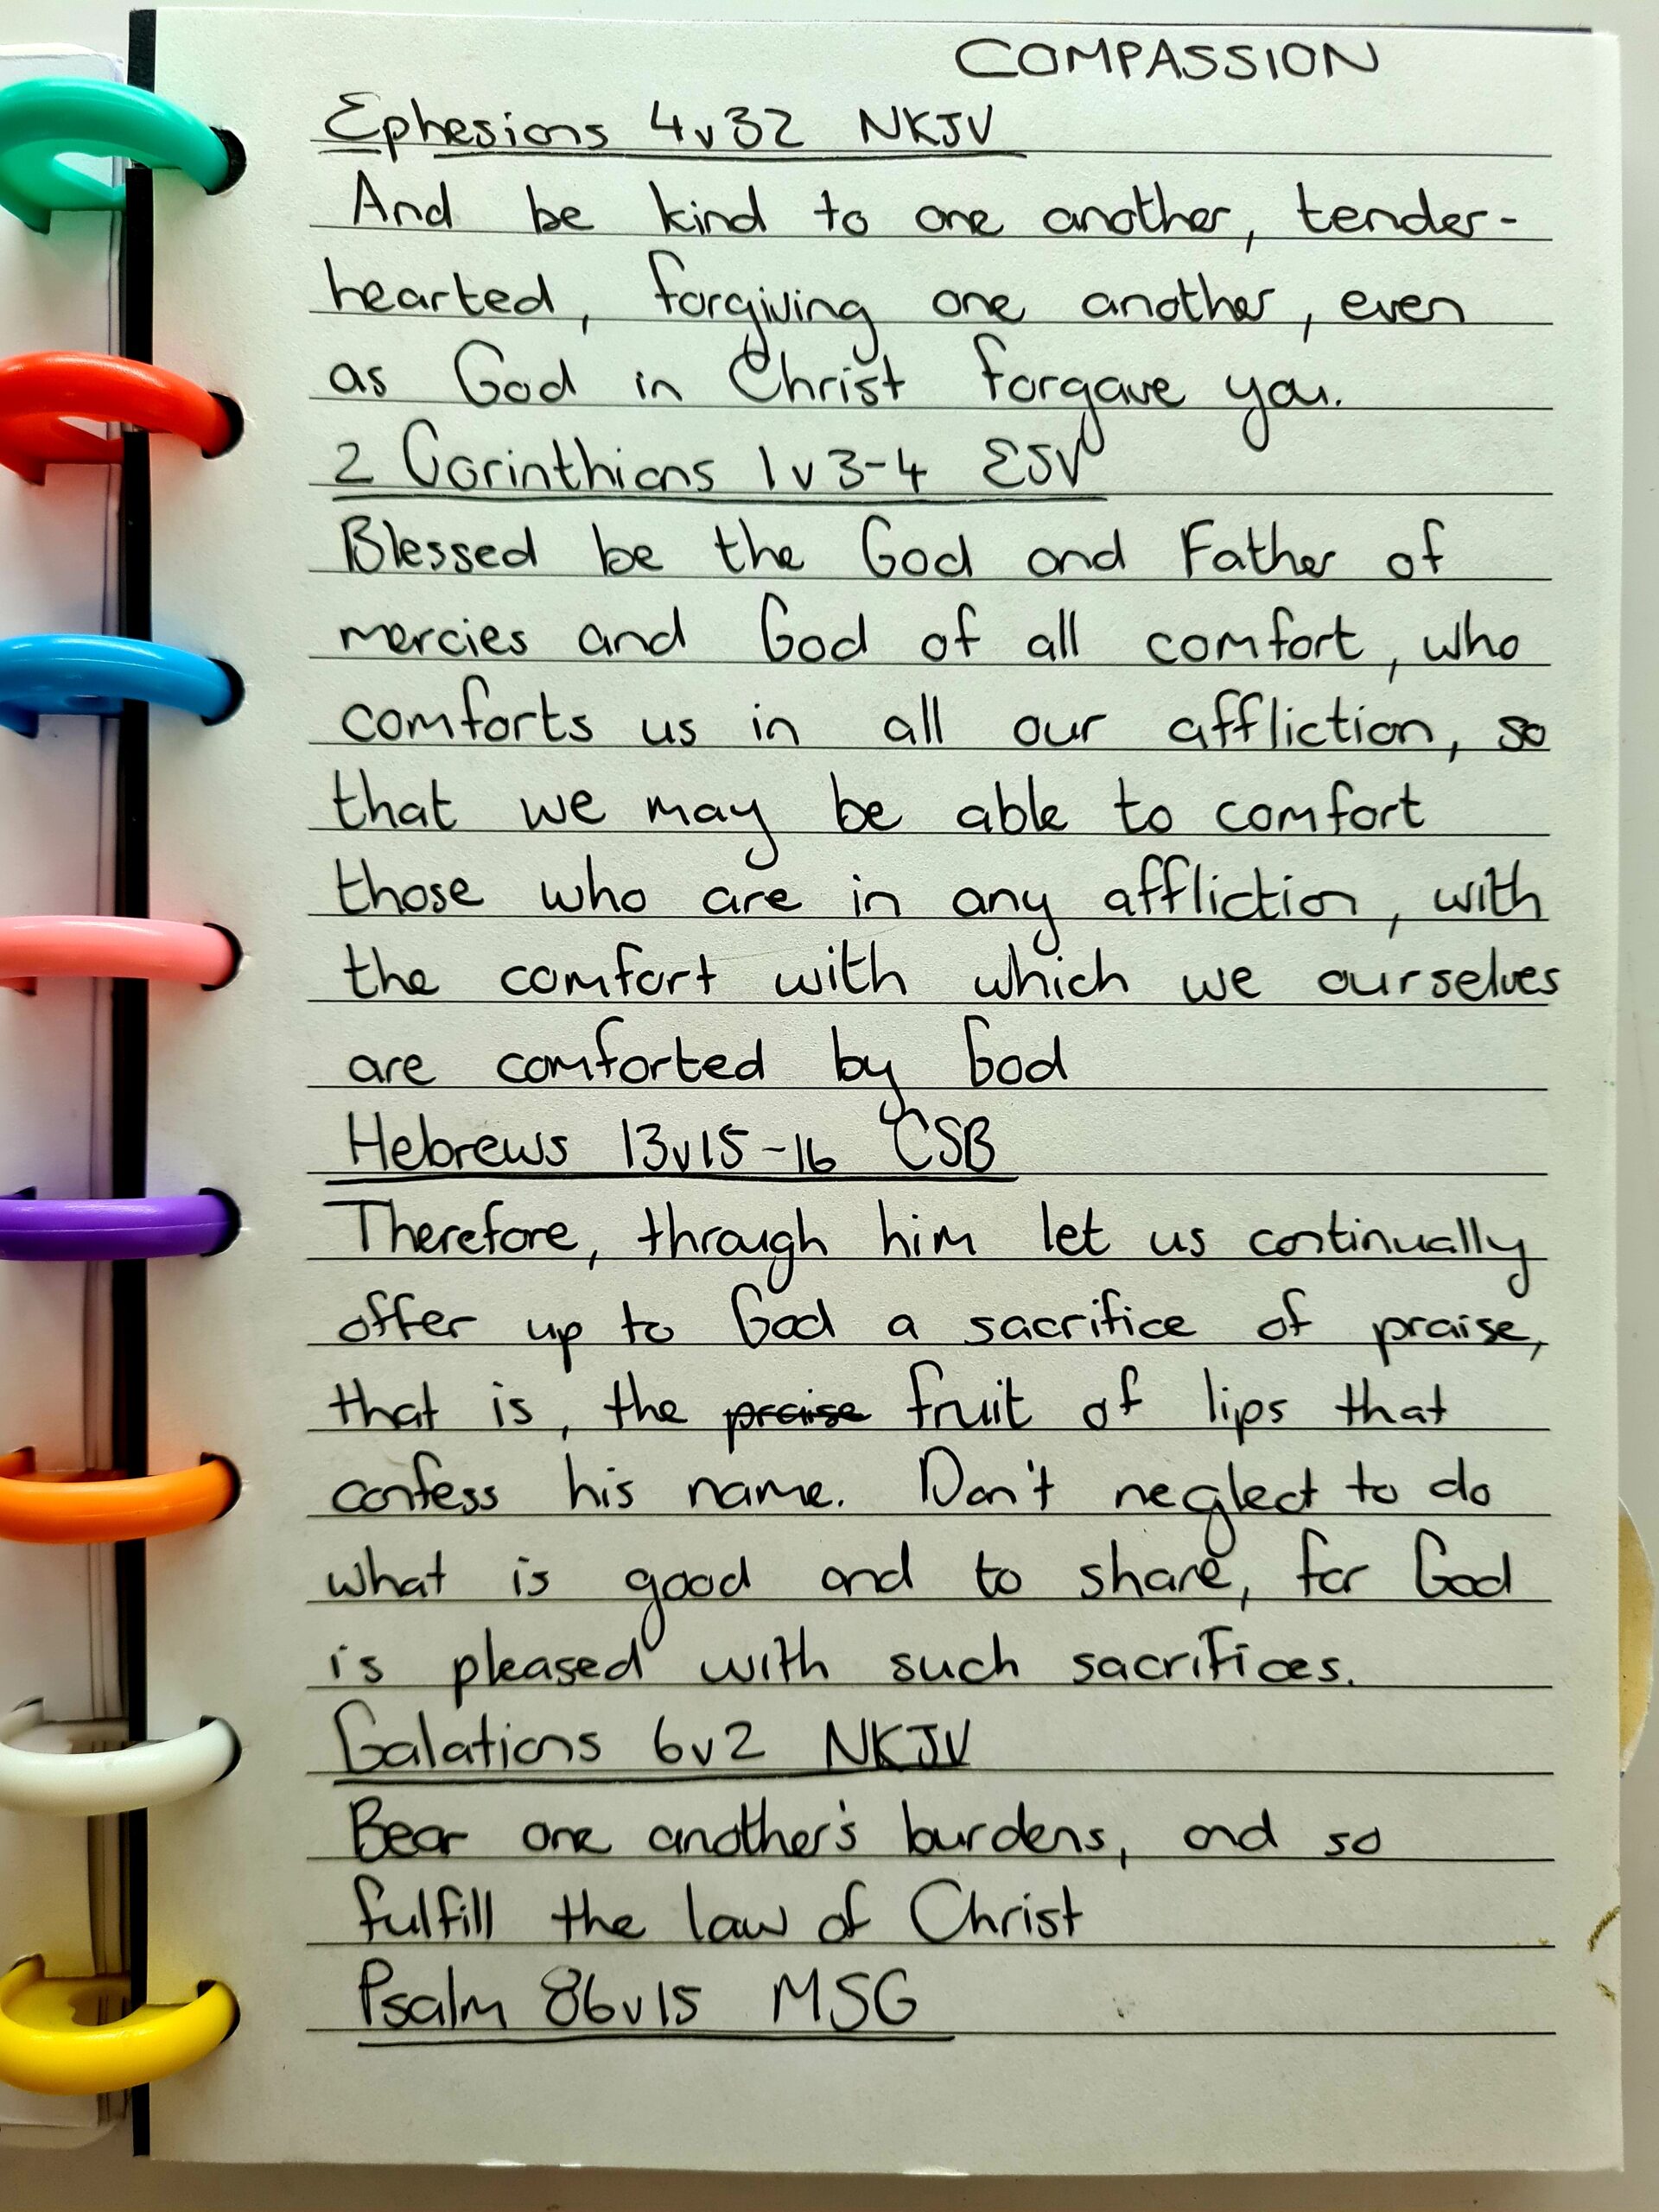 COMPASSION
Ephesians 4v32 NKJV
And be kind to one another, tender-
hearted, forgiving one another, even
as God in Christ forgave you.
2 Corinthians 1v3-4 ESV
Blessed be the God and Father of
mercies and God of all comfort, who
comforts us in all our affliction, so
that we may be able to comfort
those who are in any affliction, with
the comfort with which we ourselves
are comforted by God
Hebrews 13v15-16 CSB
Therefore, through him let us continually
offer up to God a sacrifice of praise,
that is, the praise fruit of lips that
confess his name. Don't neglect to do
what is good and to share, for God
is pleased with such sacrifices.
Galations 6v2 NKJV
Bear one another's burdens, and so
fulfill the law of Christ
Psalm 86v15 MSG